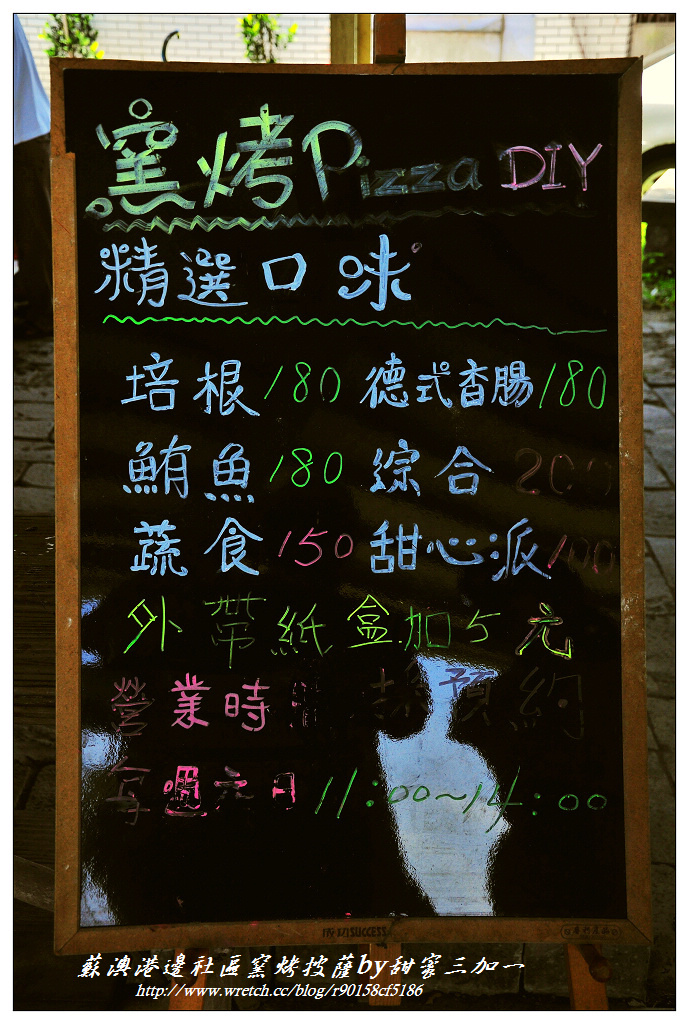 窯烤Pizza DIY
精選口味
培根180 德式香腸180
鮪魚180 綜合200
蔬食150 甜心派100
外帶紙盒加5元
營業時 採預約
每週六日11:00~14:00
成功SUCCESS
蘇澳港邊社區窯烤披薩by甜蜜三加一
http://www.wretch.cc/blog/r90158cf5186